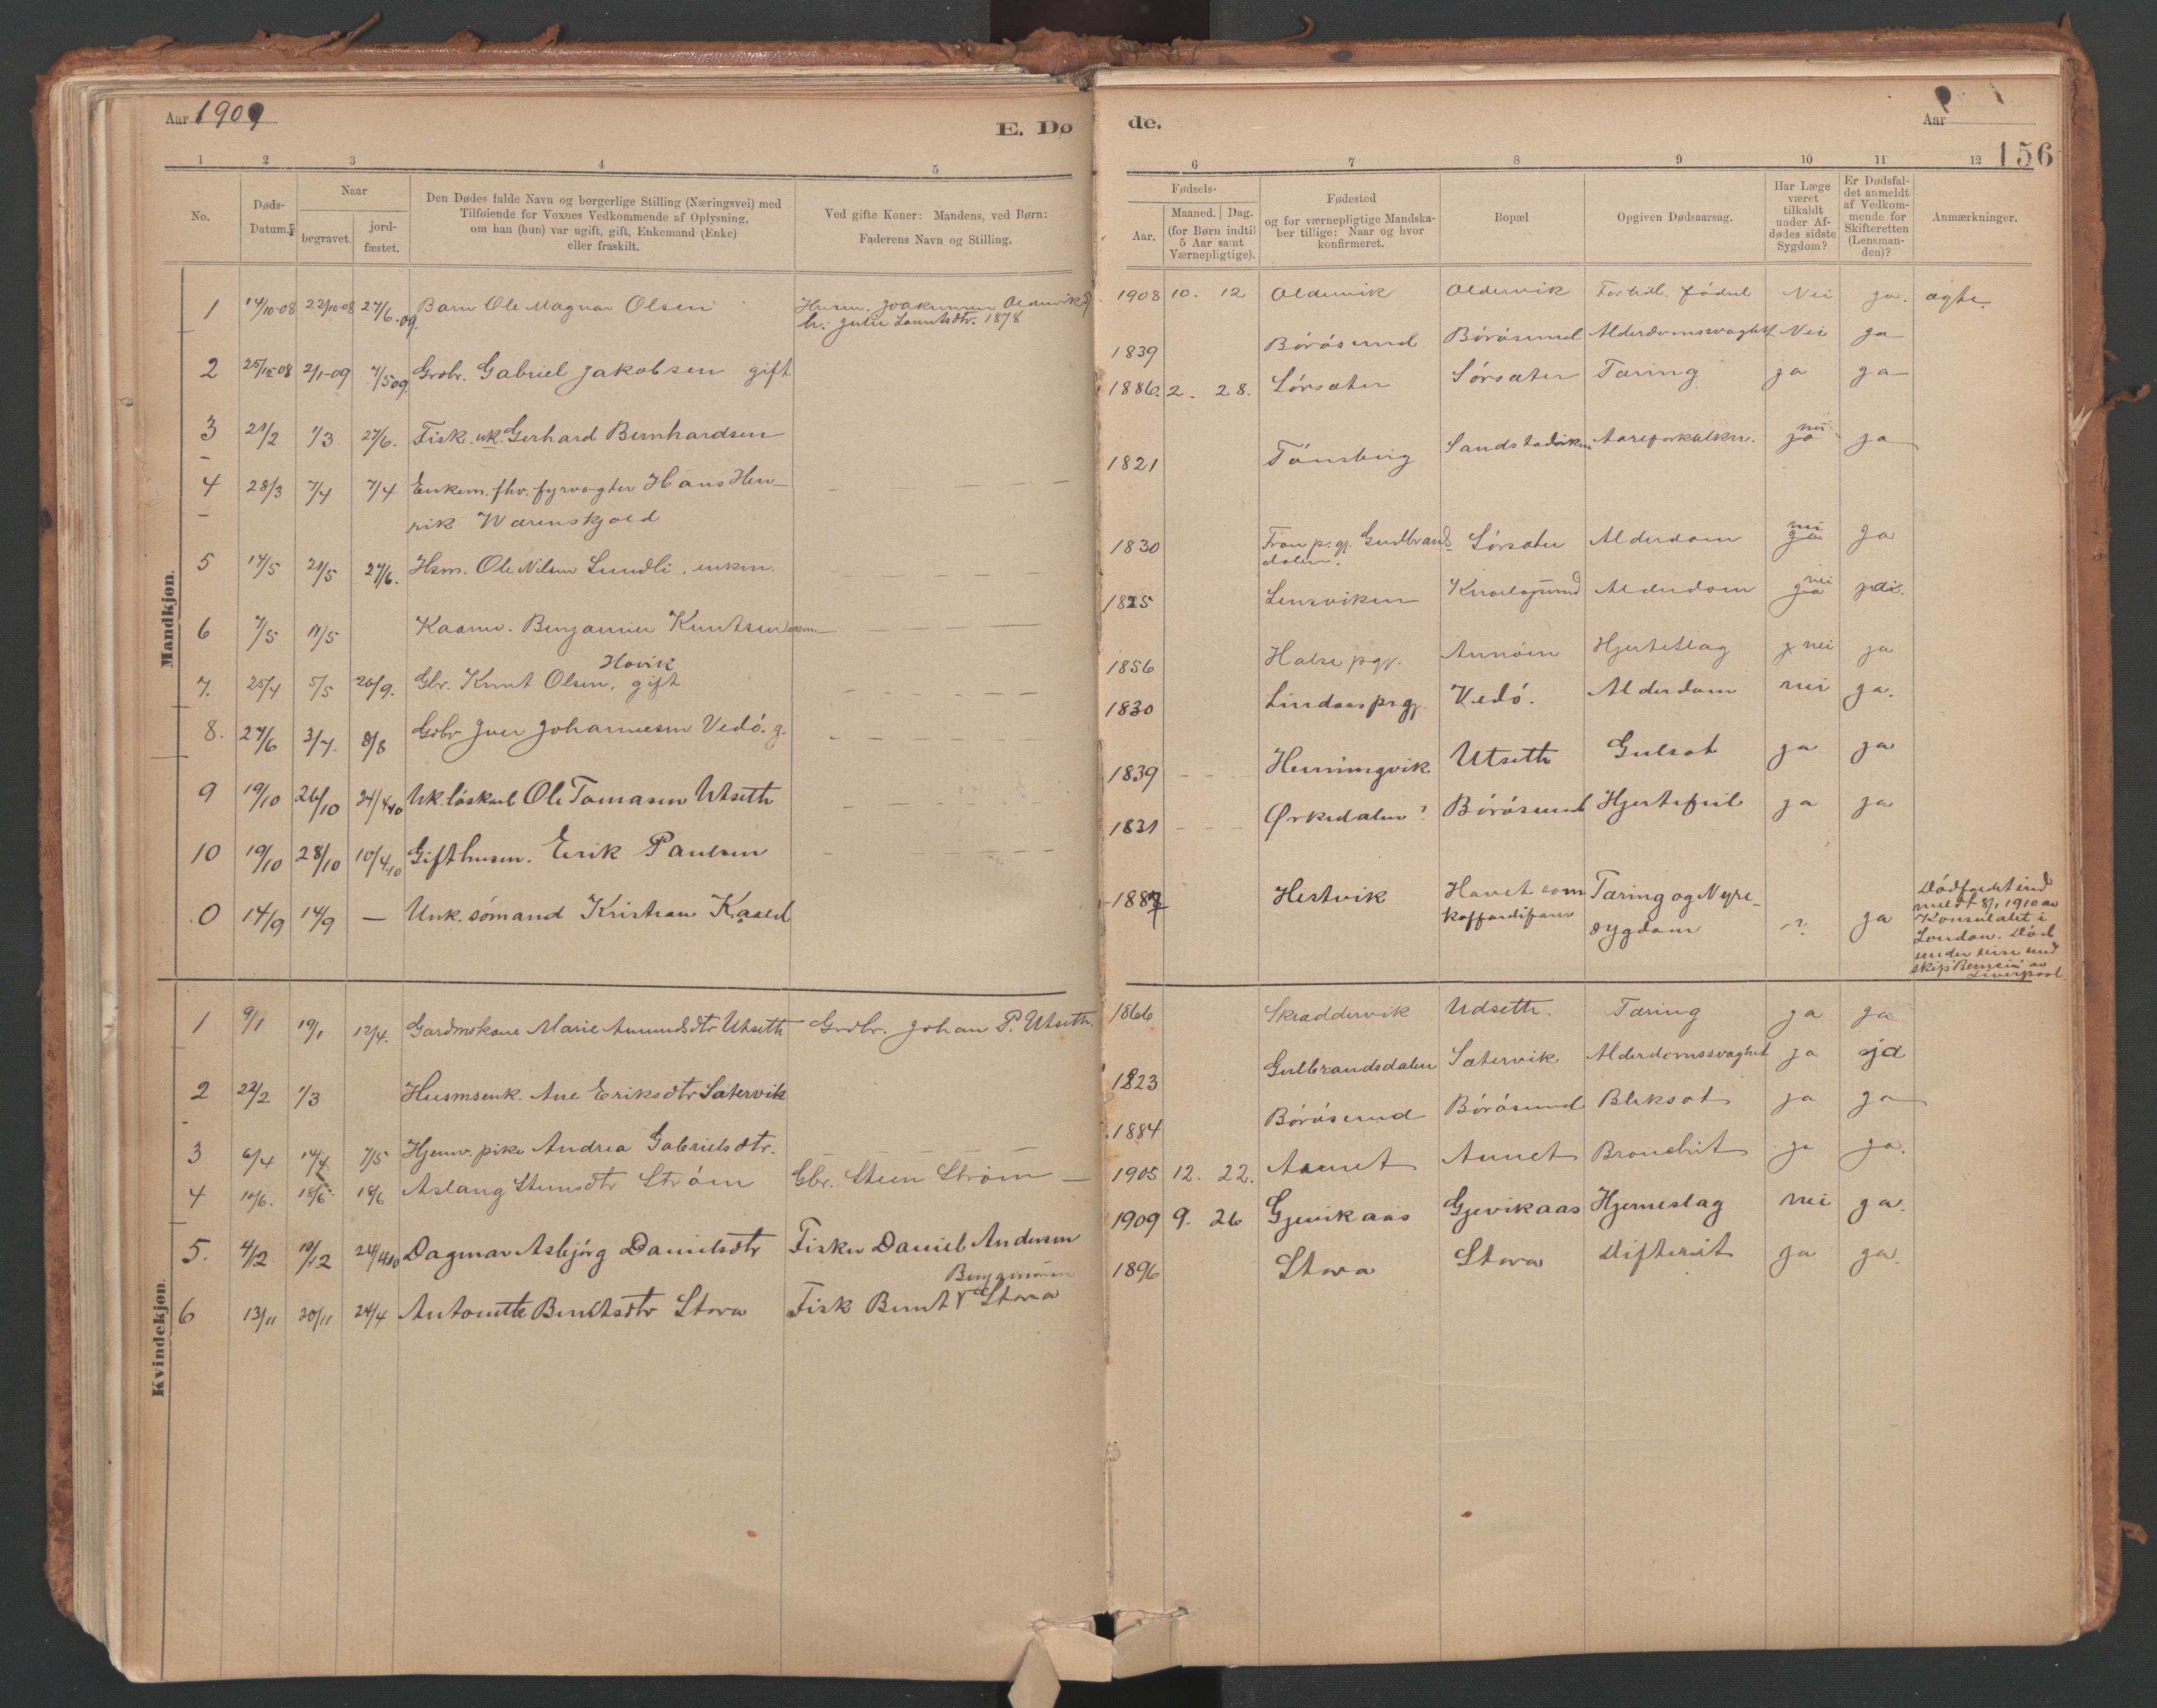 Aar 1909
E. Dø
1 2 3 4 5
No.
Døds-
Datum.
Naar
begravet.
jord-
fæstet.
Den Dødes fulde Navn og borgerlige Stilling (Næringsvei) med
Tilføiende for Voxnes Vedkommende af Oplysning,
om han (hun) var ugift, gift, Enkemand (Enke)
eller fraskilt.
Ved gifte Koner: Mandens, ved Børn:
Faderens Navn og Stilling.
Mandkjøn.
1 14/10-08 22/10-08 27/6.09. Barn Ole Magnar Olsen Husm. Joakimsen Oldervik
h. Julie 1878
2 25/12-08 2/1-09 7/5 09 Grdbr. Gabriel Jakobsen gift
3 21/2 1/3. 27/6. Fisk. uk. Gerhard Bernhardsen
4 28/3 7/4 7/4 Enkem. fhv. fyrvogter Hans Hen-
rik Warenskjold
5 14/5 21/5 27/6. Hsm. Ole Nilsen Lundli, enkm.
6 7/5 17/5 Kaarm. Benjamin Kuntsen enkm.
Hovik
7. 25/4 5/5 26/9. Gbr. Knut Olsen, gift
8. 27/6 3/7. 8/8 Grdbr Iver Johannesen Vedö. g.
9 19/10 26/10 24/4 10 Uk. löskarl Ole Tomasen Utseth
10 19/10 28/10 10/4 10 Gift husm. Erik Paulsen
0 14/9 14/9 — Unk. sömand Kristian Kaald
Kvindekjøn.
1 9/1 19/1 12/4. Gardmskone Marie Amundsdtr Utseth Grdbr. Johan P. Utseth.
2 22/2 1/3 Husmsenk. Ane Eriksdtr Sætervik
3 6/4 14/4 7/5 Hjemv. pike Andrea Gabrielsdtr.
4 10/6. 18/6 18/6 Aslaug Steinsdtr Ström Gbr. Stein Ström
5. 4/12 10/12 24/4 10 Dagmar Asbjörg Danielsdtr Fisker Daniel Andersen
Benjaminsen
6 13/11 20/11 24/4 Antonette Berntsdtr Storø Fisk Bernt Storø
de.
Aar
156
6 7 8 9 10 11 12
Fødsels-
Aar.
Maaned. Dag.
(for Børn indtil
5 Aar samt
Værnepligtige).
Fødested
og for værnepligtige Mandska-
ber tillige: Naar og hvor
konfirmeret.
Bopæl.
Opgiven Dødsaarsag.
Har Læge
været
tilkaldt
under Af-
dødes sidste
Sygdom?
Er Dødsfal-
det anmeldt
af Vedkom-
mende for
Skifteretten
(Lensman-
den)?
Anmærkninger.
1908 10. 12 Oldervik Oldervik Fortidl. födsel Nei ja. ægte.
1839 Börösund Börösund Alderdomssvaghet Nei ja
1886. 2. 28. Sörsæter Sörsæter Tæring ja ja
1821 Tönsberg Sandstadviken Aareforkalkn. nei ja ja
1830 Fron p. gj. Gudbrands-
dalen. Sörsæter Alderdom nei ja ja
1825 Lensviken Alderdom nei ja
1856 Halse pgj. Aunöien Hjerteslag nei ja
1830 Lindaas prgj. Vedö. Alderdom nei ja.
1839 Henningvik Utseth Gulsot ja ja
1831 Ørkedalen? Börösund Hjertefeil ja ja
1887 Hestvik Havet som
koffardifarer Tæring og Nyre-
sygdom -? ja
Dödsfaldet ind
meldt 8/1 1910 av
Konsulatet i
London. Död
under reise med
skip av
Liverpool
1866 Skræddervik Udseth. Tæring ja ja
1823 Gulbrandsdalen Sætervik Alderdomssvaghet ja ja
1884 Börösund Börösund Bleksot ja ja
1905 12. 22. Aunet Aunet Bronchit ja ja.
1909 9. 26 Gjevikaas Gjevikaas Hjerneslag nei ja.
1896 Storø Storø Difterit ja ja.